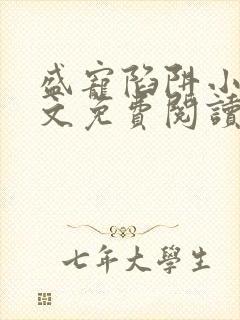 盛寵陷阱小
文免費閱讀
七年大學生